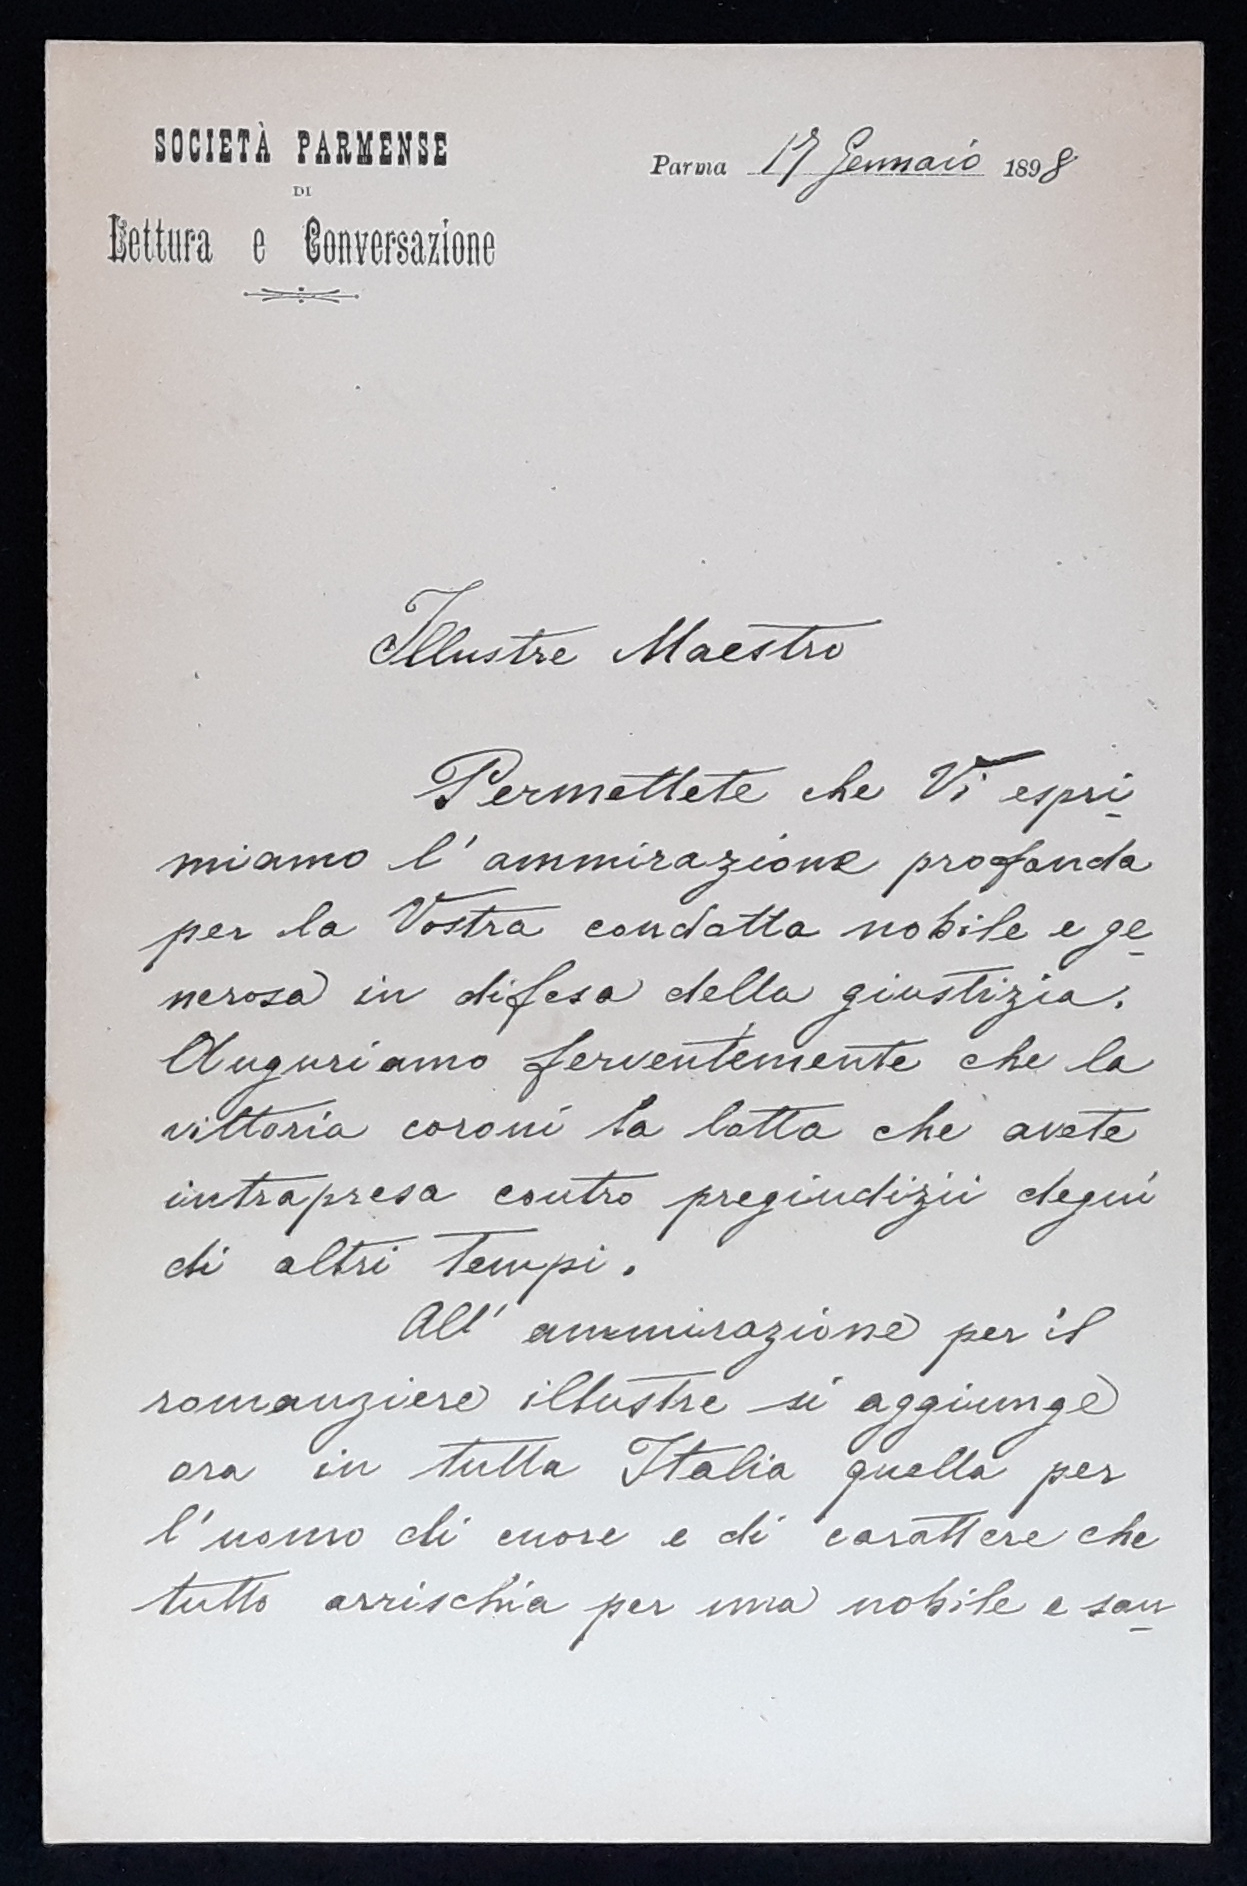 SOCIETÀ PARMENSE
DI
Lettura e Conversazione
Parma 17 Gennaio 1898
Illustre Maestro
Permettete che Vi espri
miamo l'ammirazione profonda
per la Vostra condotta nobile e ge
nerosa in difesa della giustizia.
Auguriamo ferventemente che la
vittoria coroni la lotta che avete
intrapresa contro pregiudizii degni
di altri tempi.
All'ammirazione per il
romanziere illustre si aggiunge
ora in tutta Italia quella per
l'uomo di cuore e di carattere che
tutto arrischia per una nobile e san